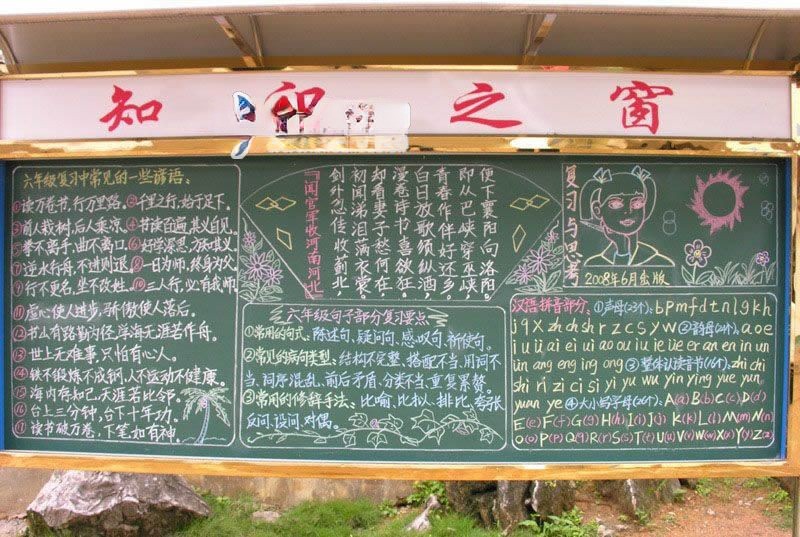 知 之 窗
六年级复习中常见的一些谚语:
①读万卷书,行万里路。②千里之行,始于足下。
③前人栽树,后人乘凉。④书读百遍,其义自见。
⑤拳不离手,曲不离口。⑥好学深思,心知其义。
⑦逆水行舟,不进则退。⑧一日为师,终身为父。
⑨行不更名,坐不改姓。⑩三人行,必有我师
⑪虚心使人进步,骄傲使人落后。
⑫书山有路勤为径,学海无涯苦作舟。
⑬世上无难事,只怕有心人。
⑭铁不锻炼不成钢,人不运动不健康。
⑮海内存知己,天涯若比邻。
⑯台上三分钟,台下十年功。
⑰读书破万卷,下笔如有神.
《闻官军收河南河北》
剑外忽传收蓟北,
初闻涕泪满衣裳。
却看妻子愁何在,
漫卷诗书喜欲狂。
白日放歌须纵酒,
青春作伴好还乡。
即从巴峡穿巫峡,
便下襄阳向洛阳。
六年级句子部分复习要点
①常用的句式:陈述句、疑问句、感叹句、祈使句。
②常见的病句类型:结构不完整、搭配不当、用词不
当、词序混乱、前后矛盾、分类不当、重复累赘。
③常用的修辞手法、比喻、比拟、排比、夸张
反问、设问、对偶。
复习与思考
2008年6月出版
汉语拼音部分:①声母(23个):b p m f d t n l g k h
j q x zh ch sh r z c s y w ②韵母(24个):a o e
i u ü ai ei ui ao ou iu ie üe er an en in un
ün ang eng ing ong ③整体认读音节(16个):zhi chi
shi ri zi ci si yi yu wu yin ying yue yun
yuan ye ④大小写字母(26个):A(a) B(b) C(c) D(d)
E(e) F(f) G(g) H(h) I(i) J(j) K(k) L(l) M(m) N(n)
O(o) P(p) Q(q) R(r) S(s) T(t) U(u) V(v) W(w) X(x) Y(y) Z(z)